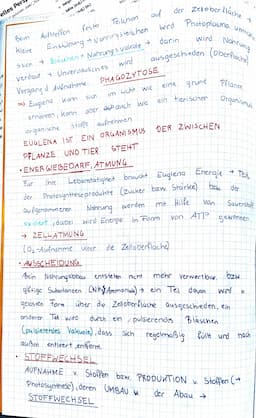 Beim Auftreffen fester Teilchen auf der Zelloberfläche →
kleine Einstülpung
Bläschen = Nahrungsvakuole → darin wird Nahrung
verdaut → Unverdauliches wird ausgeschieden (Oberfläche)
Vorgang d. Aufnahme: PHAGOZYTOSE
→ Euglena kann sich im Licht wie eine grüne Pflanze
ernähren, kann aber auch wie ein tierischer Organismus
organische Stoffe aufnehmen
EUGLENA IST EIN ORGANISMUS DER ZWISCHEN
PFLANZE UND TIER STEHT
• ENERGIEBEDARF, ATMUNG
Für ihre Lebenstätigkeit braucht Euglena Energie → Teil
der Photosyntheseprodukte (Zucker bzw. Stärke) bzw. der
aufgenommenen Nahrung werden mit Hilfe von Sauerstoff
oxidiert, dabei wird Energie in Form von ATP gewonnen
→ ZELLATMUNG
(O₂-Aufnahme über die Zelloberfläche)
• AUSSCHEIDUNG
Beim Nahrungsabbau entstehen nicht mehr verwertbare bzw.
giftige Substanzen → ein Teil davon wird in
gelöster Form über die Zelloberfläche ausgeschieden, ein
anderer Teil wird durch ein pulsierendes Bläschen
(pulsierende Vakuole), dass sich regelmäßig füllt und nach
außen entleert, entfernt.
• STOFFWECHSEL
AUFNAHME v. Stoffen bzw. PRODUKTION v. Stoffen (→
Photosynthese), deren UMBAU u. der Abbau →
STOFFWECHSEL